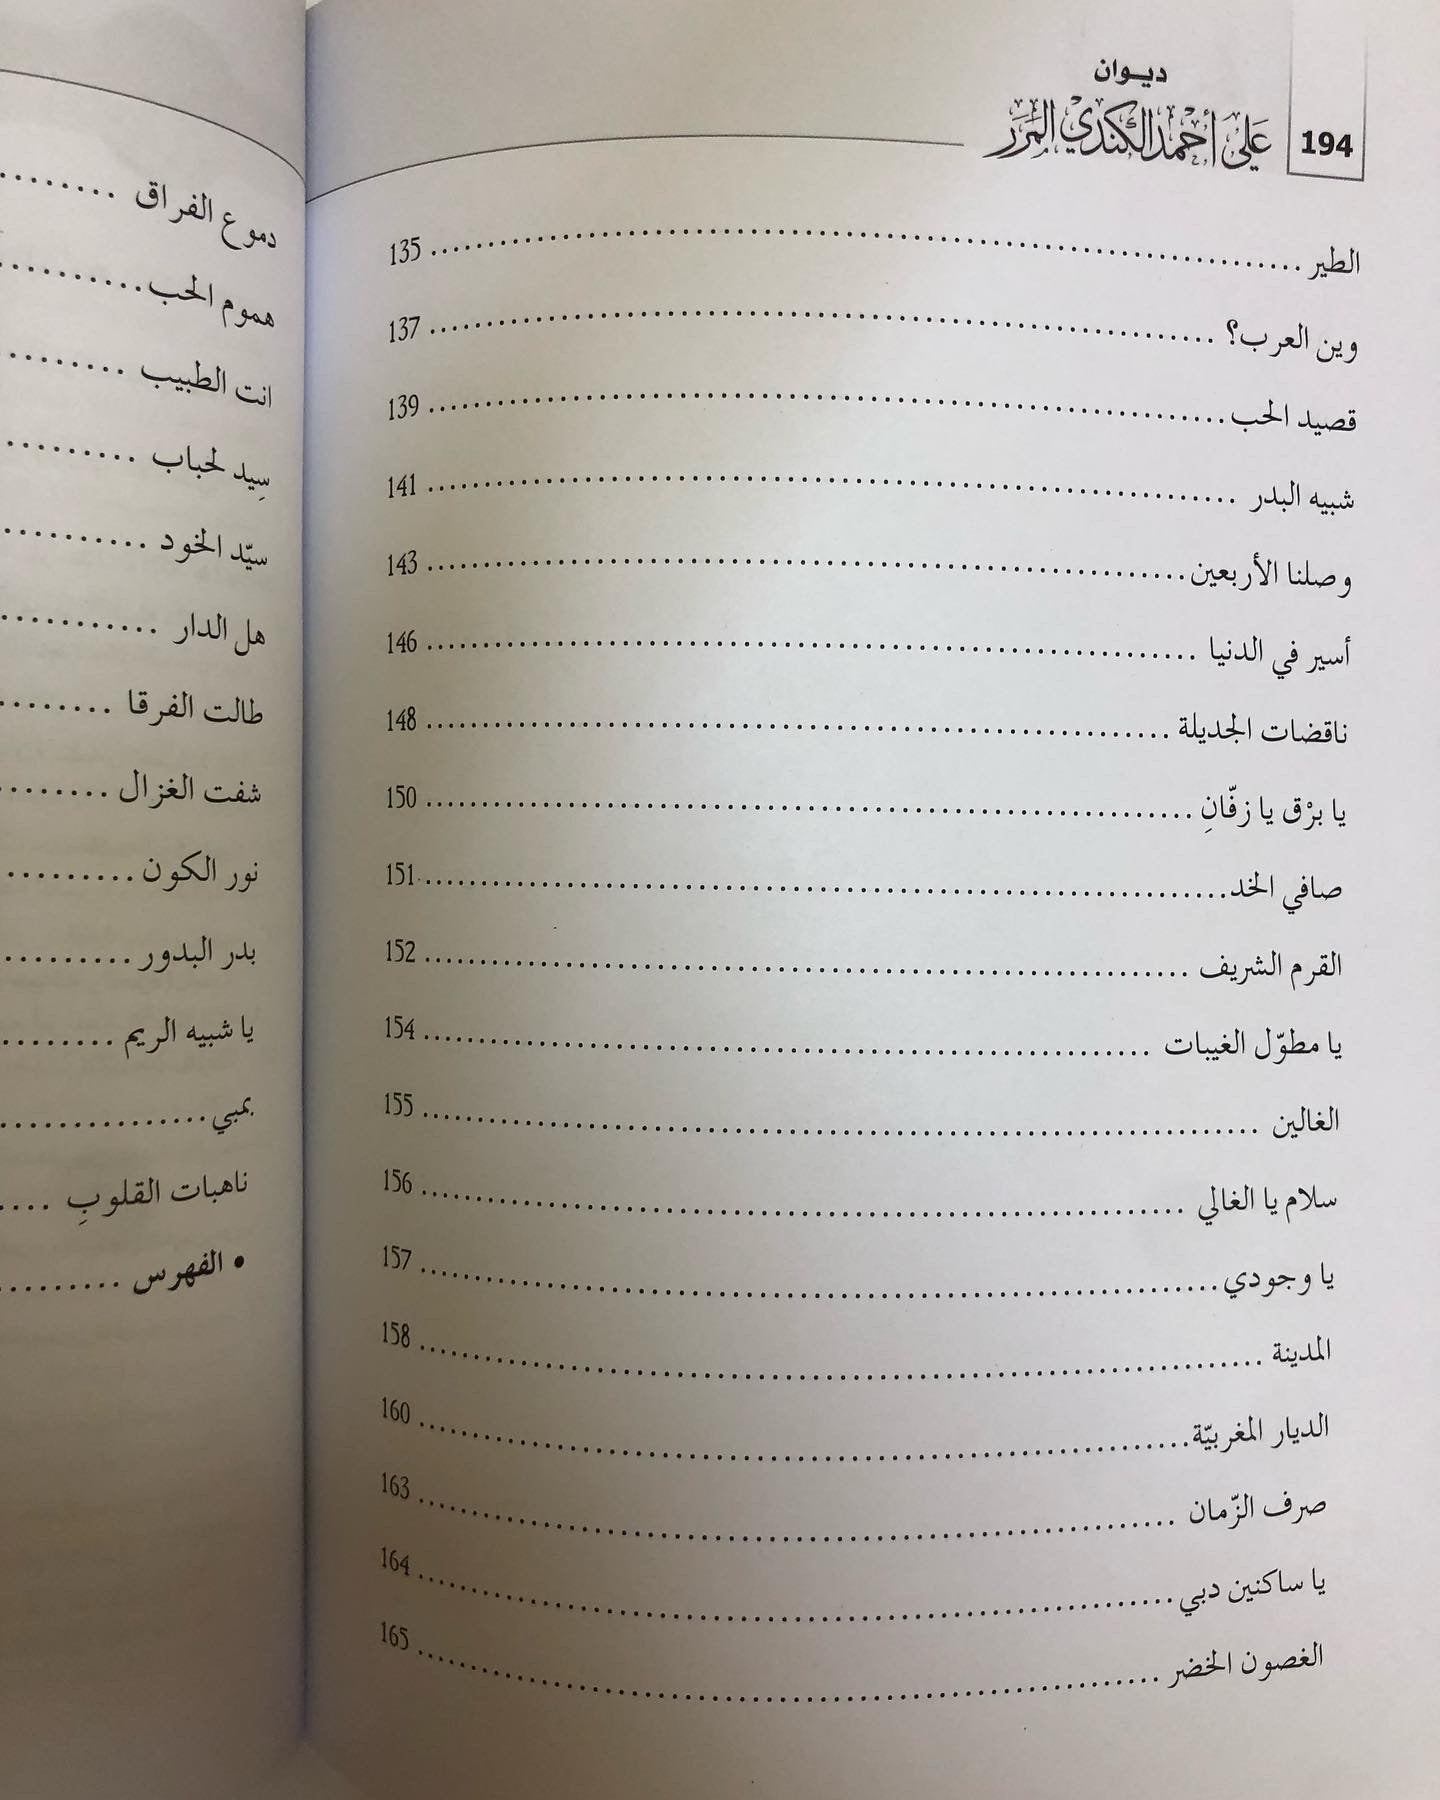 194
ديوان
علي أحمد الكندي المرر
الطير 135
وين العرب؟ 137
قصيد الحب 139
شبيه البدر 141
وصلنا الأربعين 143
أسير في الدنيا 146
ناقضات الجديلة 148
يا برْق يا زفّانِ 150
صافي الخد 151
القرم الشريف 152
يا مطوّل الغيبات 154
الغالين 155
سلام يا الغالي 156
يا وجودي 157
المدينة 158
الديار المغربيّة 160
صرف الزّمان 163
يا ساكنين دبي 164
الغصون الخضر 165
دموع الفراق
هموم الحب
انت الطبيب
سِيد لحباب
سيّد الخود
هل الدار
طالت الفرقا
شفت الغزال
نور الكون
بدر البدور
يا شبيه الريم
بمبي
ناهبات القلوبِ
• الفهرس